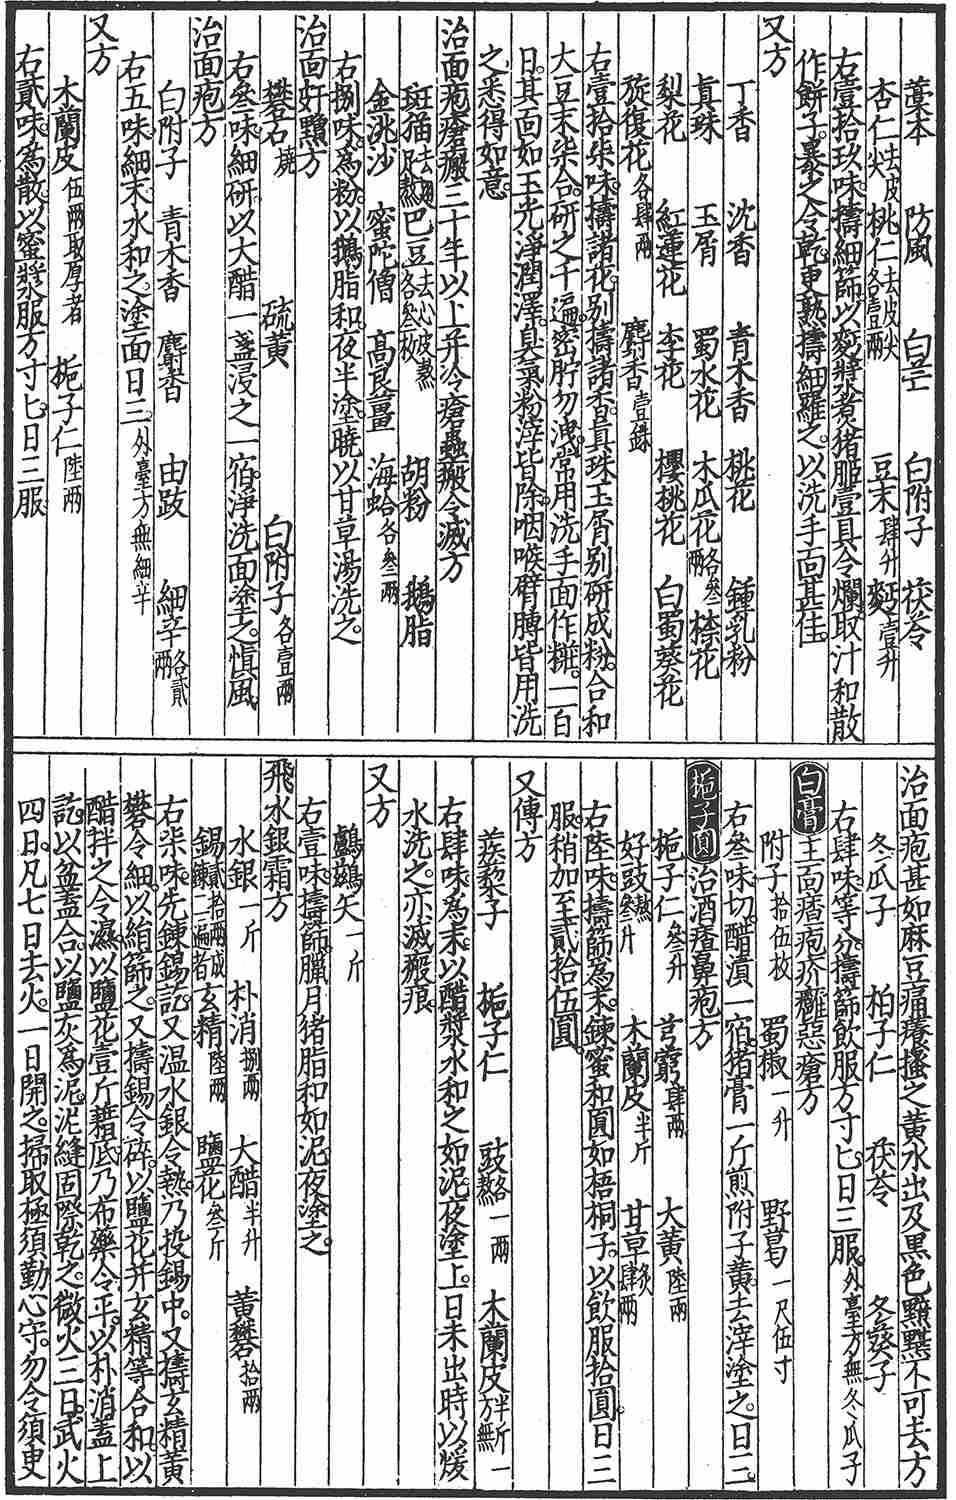 藁本 防風 白芷 白附子 茯苓
杏仁去皮尖 桃仁各壹兩去皮尖 豆末肆升 麪壹升
右壹拾玖味擣細篩以麪漿煮猪胑壹具令爛取汁和散
作餅子暴之令乾更熟擣細羅之以洗手面甚佳
又方
丁香 沈香 青木香 桃花 鍾乳粉
真珠 玉屑 蜀水花 木瓜花各叁兩 㮈花
梨花 紅蓮花 李花 櫻桃花 白蜀葵花
旋復花各肆兩 麝香壹銖
右壹拾柒味擣諸花別擣諸香真珠玉屑別研成粉合和
大豆末柒合研之千遍密貯勿洩常用洗手面作粧一百
日其面如玉光淨潤澤臭氣粉滓皆除咽喉臂膊皆用洗
之悉得如意
治面疱瘡瘢三十年以上并冷瘡蟲瘢令滅方
斑猫去翅足熬 巴豆去心皮熬各叁枚 胡粉 鵝脂
金洮沙 蜜陀僧 高良薑 海蛤各叁兩
右捌味為粉以鵝脂和夜半塗曉以甘草湯洗之
治面奸䵟方
礬石燒 硫黃 白附子各壹兩
右叁味細研以大醋一盞浸之一宿淨洗面塗之慎風
治面疱方
白附子 青木香 麝香 由跋 細辛各貳兩
右五味細末水和之塗面日三外臺方無細辛
又方
木蘭皮伍兩取厚者 梔子仁陸兩
右貳味為散以蜜漿服方寸匕日三服
治面疱甚如麻豆痛癢搔之黃水出及黑色黯䵴不可去方
冬瓜子 柏子仁 茯苓 冬葵子
右肆味等分擣篩飲服方寸匕日三服外臺方無冬瓜子
白膏主面㾴疱疥癰惡瘡方
附子拾伍枚 蜀椒一升 野葛一尺伍寸
右叁味切醋漬一宿猪膏一斤煎附子黃去滓塗之日三
梔子圓治酒㾴鼻疱方
梔子仁叁升 芎藭肆兩 大黃陸兩
好豉熬叁升 木蘭皮半斤 甘草炙肆兩
右陸味擣篩為末鍊蜜和圓如梧桐子以飲服拾圓日三
服稍加至貳拾伍圓
又傅方
蒺藜子 梔子仁 豉熬各一兩 木蘭皮半斤一方無
右肆味為末以醋漿水和之如泥夜塗上日未出時以煖
水洗之亦滅瘢痕
又方
鸕鷀矢一斤
右壹味擣篩臘月猪脂和如泥夜塗之
飛水銀霜方
水銀一斤 朴消捌兩 大醋半升 黃礬拾兩
錫貳拾兩成鍊二遍者 玄精陸兩 鹽花叁斤
右柒味先鍊錫訖又温水銀令熱乃投錫中又擣玄精黃
礬令細以絹篩之又擣錫令碎以鹽花并玄精等合和以
醋拌之令濕以鹽花壹斤藉底乃布藥令平以朴消蓋上
訖以盆蓋合以鹽灰為泥泥縫固際乾之微火三日武火
四日凡七日去火一日開之掃取極須勤心守勿令須臾